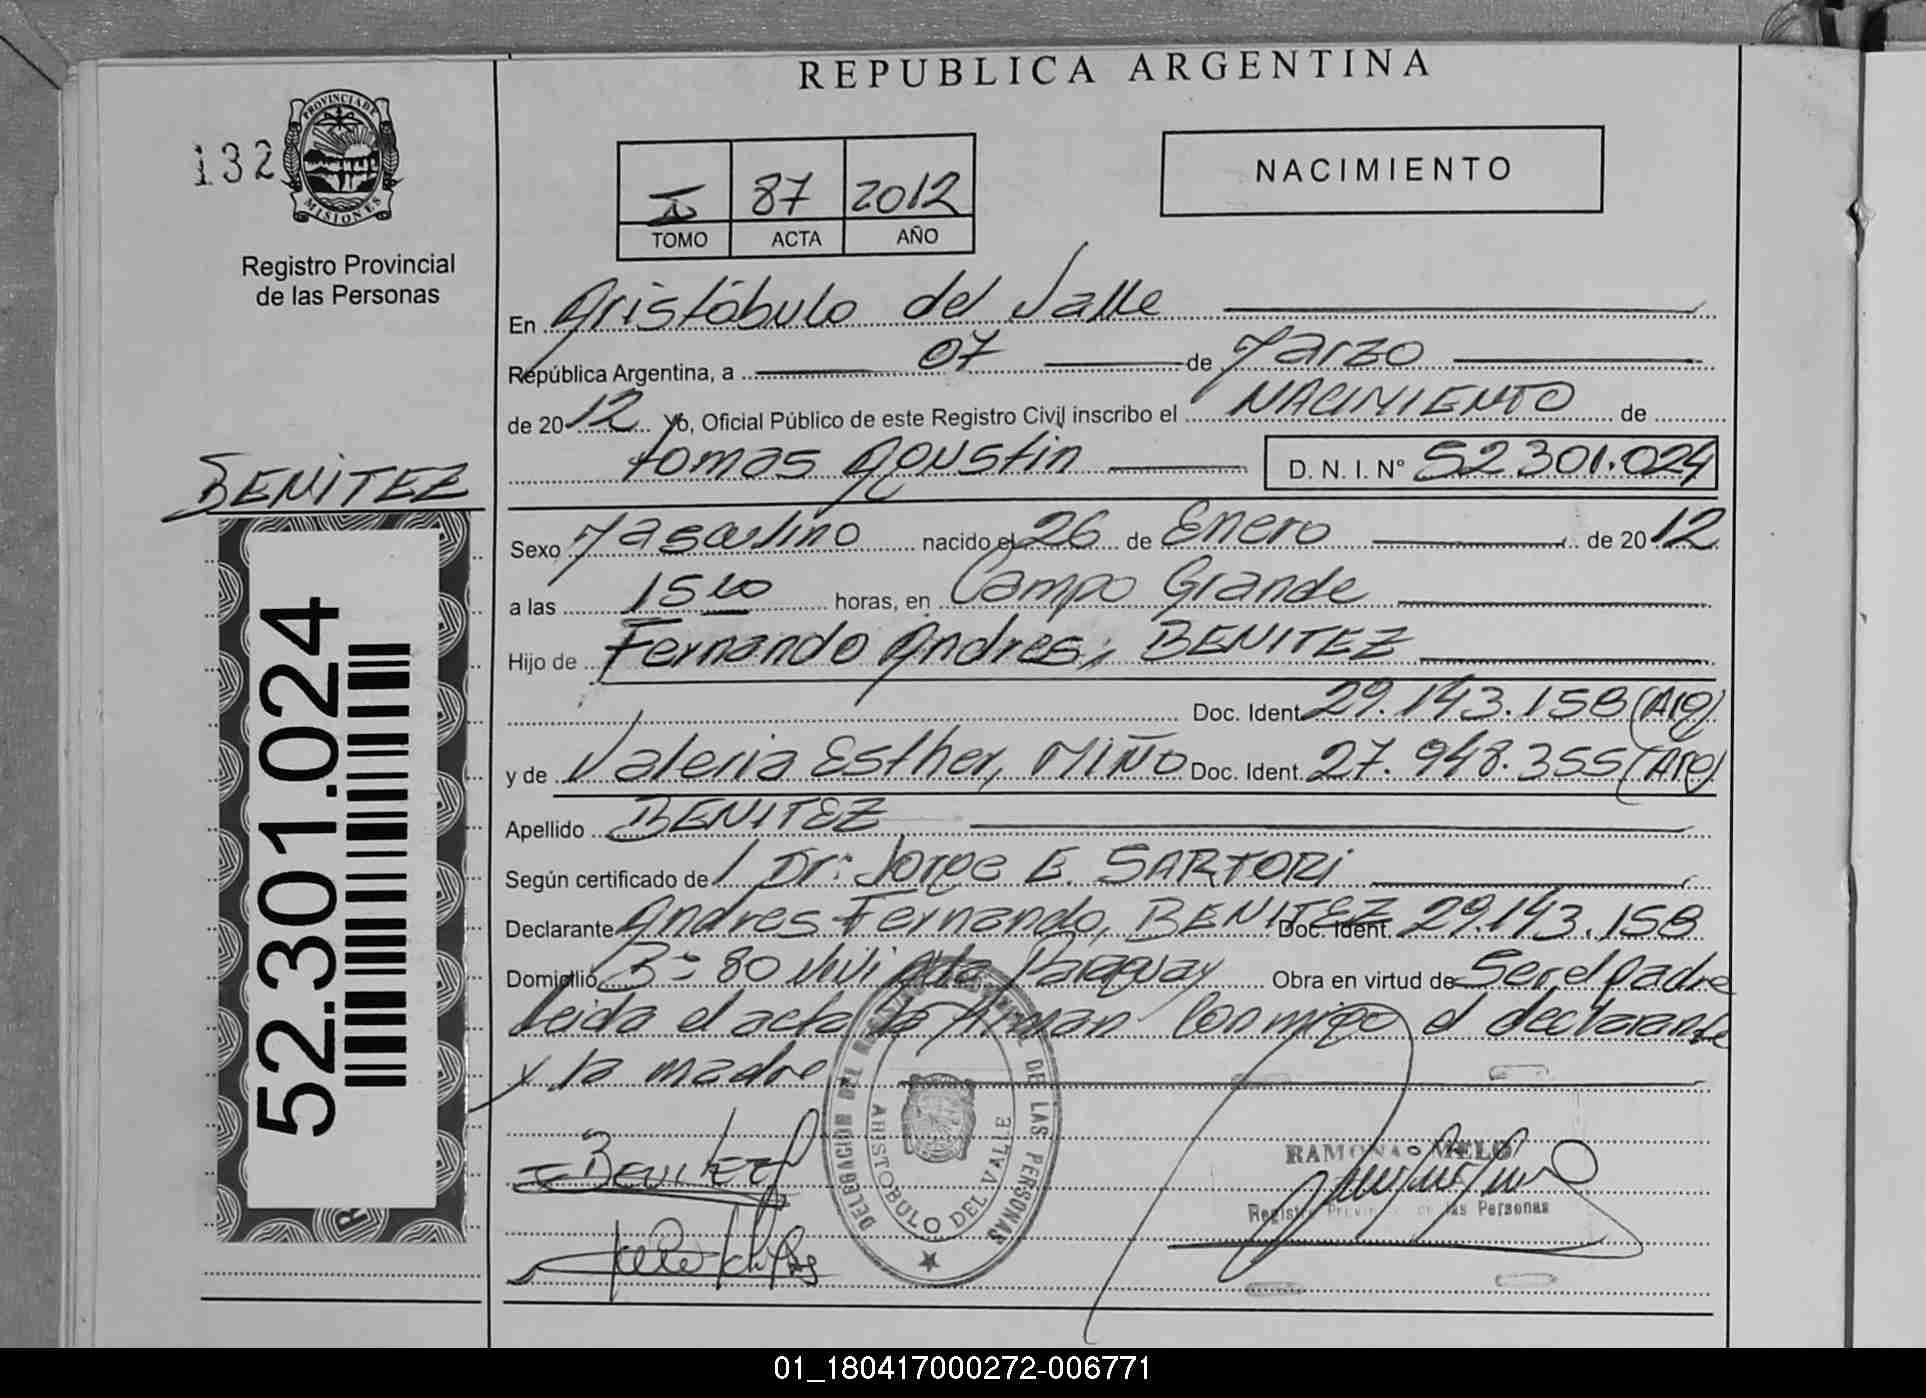 REPUBLICA ARGENTINA
132
PROVINCIA DE MISIONES
Registro Provincial
de las Personas
I 87 2012
TOMO ACTA AÑO
NACIMIENTO
En Aristóbulo del Valle
República Argentina, a 07 de Marzo
de 2012 Yo, Oficial Público de este Registro Civil inscribo el NACIMIENTO de
Tomas Agustin D. N. I. N° 52301.024
BENITEZ
52.301.024
Sexo Masculino nacido el 26 de Enero de 2012
a las 15 horas, en Campo Grande
Hijo de Fernando Andres; BENITEZ
Doc. Ident. 29.143.158 (Arg)
y de Valeria Esther, MIÑO Doc. Ident. 27.948.355 (Arg)
Apellido BENITEZ
Según certificado de Dr: Jorge E. SARTORI
Declarante Andres Fernando, BENITEZ Doc. Ident. 29.143.158
Domicilio 80 Paraguay Obra en virtud de Ser el padre
Leida el acta la firman conmigo el declarante
y la madre
DELEGACIÓN DEL DE LAS PERSONAS
ARISTOBULO DEL VALLE
Benitez
RAMONA MELO
Registro de las Personas
01_180417000272-006771